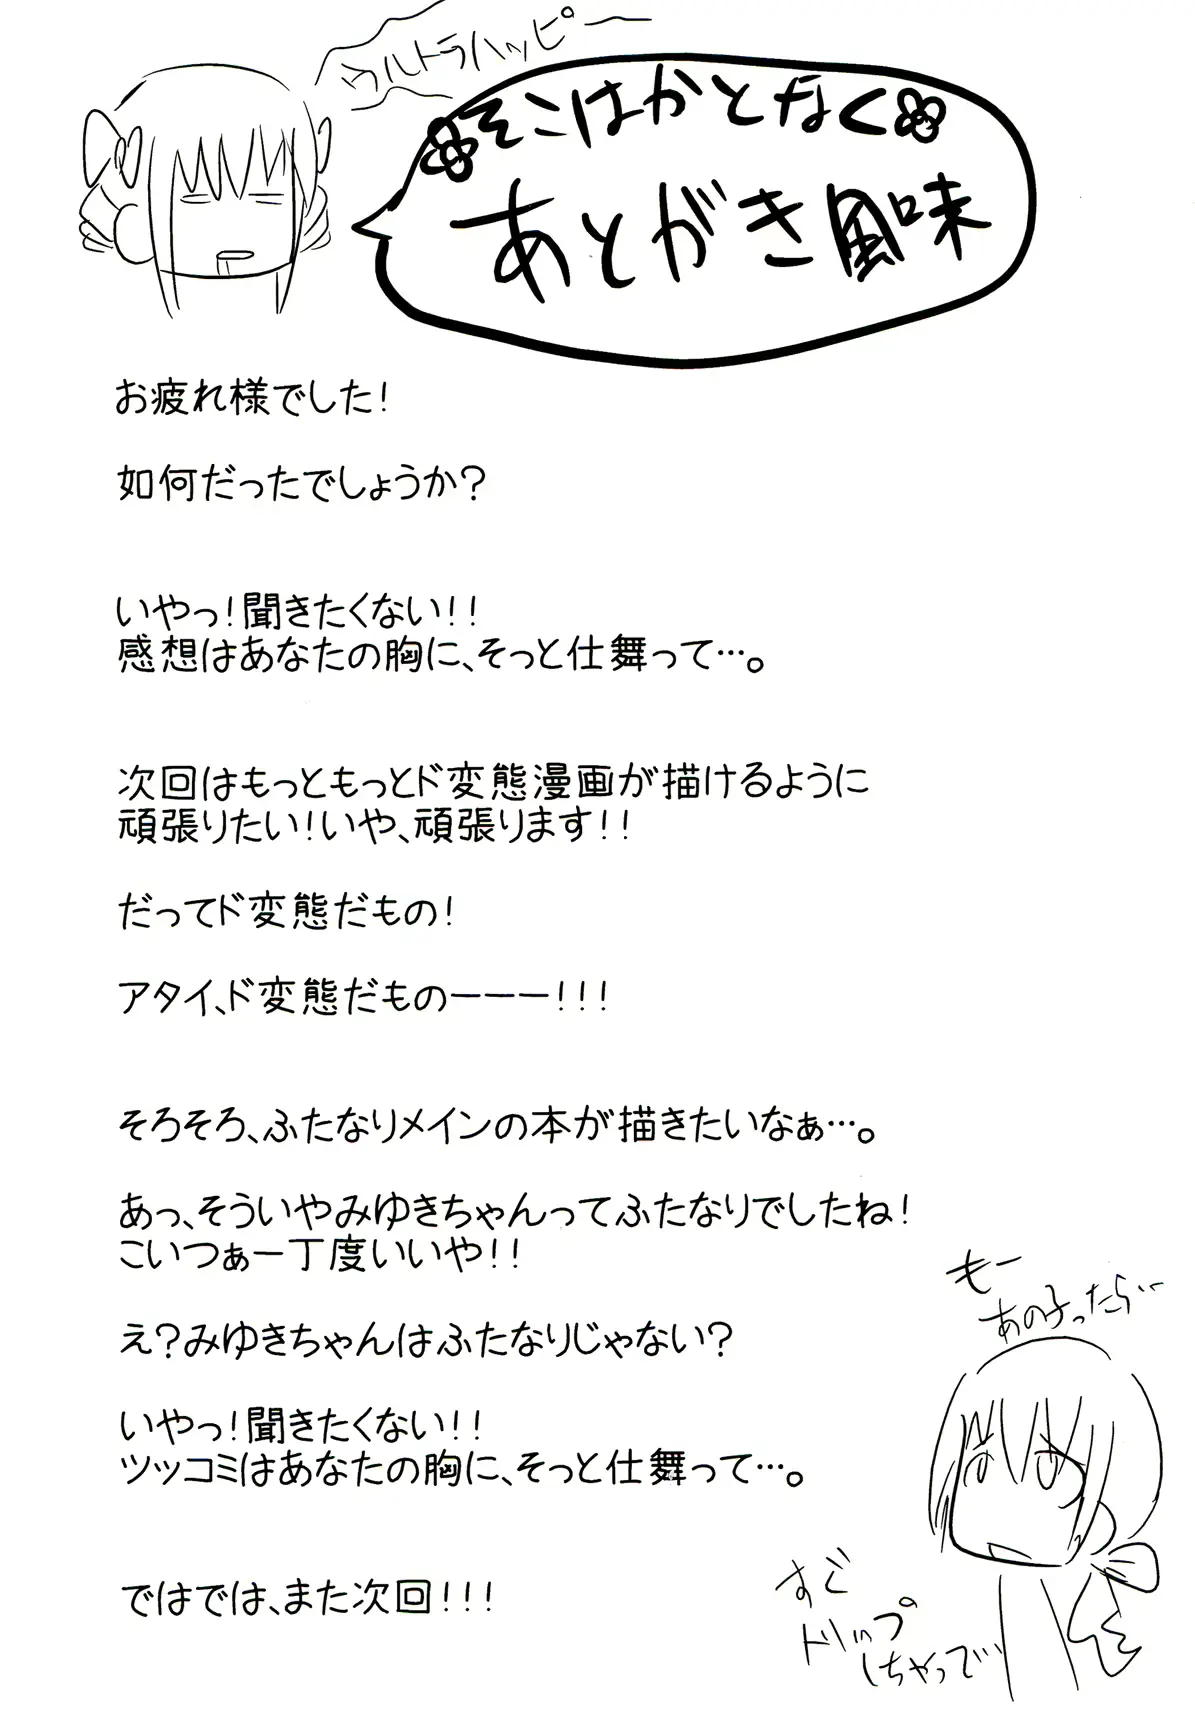 ウルトラハッピー
そこはかとなく
あとがき風味
お疲れ様でした！
如何だったでしょうか？
いやっ！聞きたくない！！
感想はあなたの胸に、そっと仕舞って…。
次回はもっともっとド変態漫画が描けるように
頑張りたい！いや、頑張ります！！
だってド変態だもの！
アタイ、ド変態だものーーー！！！
そろそろ、ふたなりメインの本が描きたいなぁ…。
あっ、そういやみゆきちゃんってふたなりでしたね！
こいつぁ一丁度いいや！！
え？みゆきちゃんはふたなりじゃない？
いやっ！聞きたくない！！
ツッコミはあなたの胸に、そっと仕舞って…。
ではでは、また次回！！！
もー
あの子ったら…
すぐ
トリップ
しちゃって…